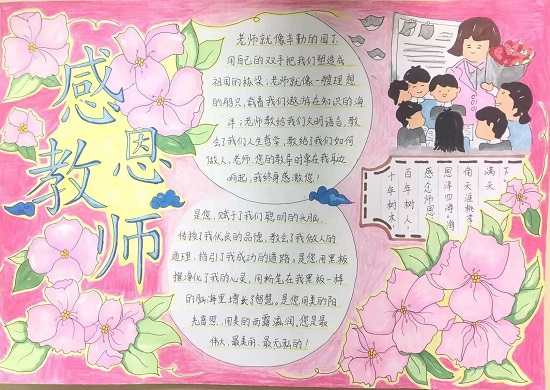 感恩教师
老师就像辛勤的园丁
用自己的双手把我们塑造成
祖国的栋梁;老师就像一艘理想
的船只,载着我们遨游在知识的海
洋;老师教给我们文明语言,教
会了我们人生哲学,教给了我们如何
做人。老师,您的教导常在我耳边
响起,我终身感激您!
是您,赋予了我们聪明的头脑,
传授了我优良的品德,教会了我做人的
道理,指引了我成功的道路。是您,用黑板
擦净化了我的心灵,用粉笔在我黑板一样
的脑海里增长了智慧。是您,用美的阳
光普照,用美的雨露滋润,您是最
伟大,最美丽,最无私的!
下
满天
角天涯桃李
恩泽四海·海
感念师恩
百年树人·
十年树木